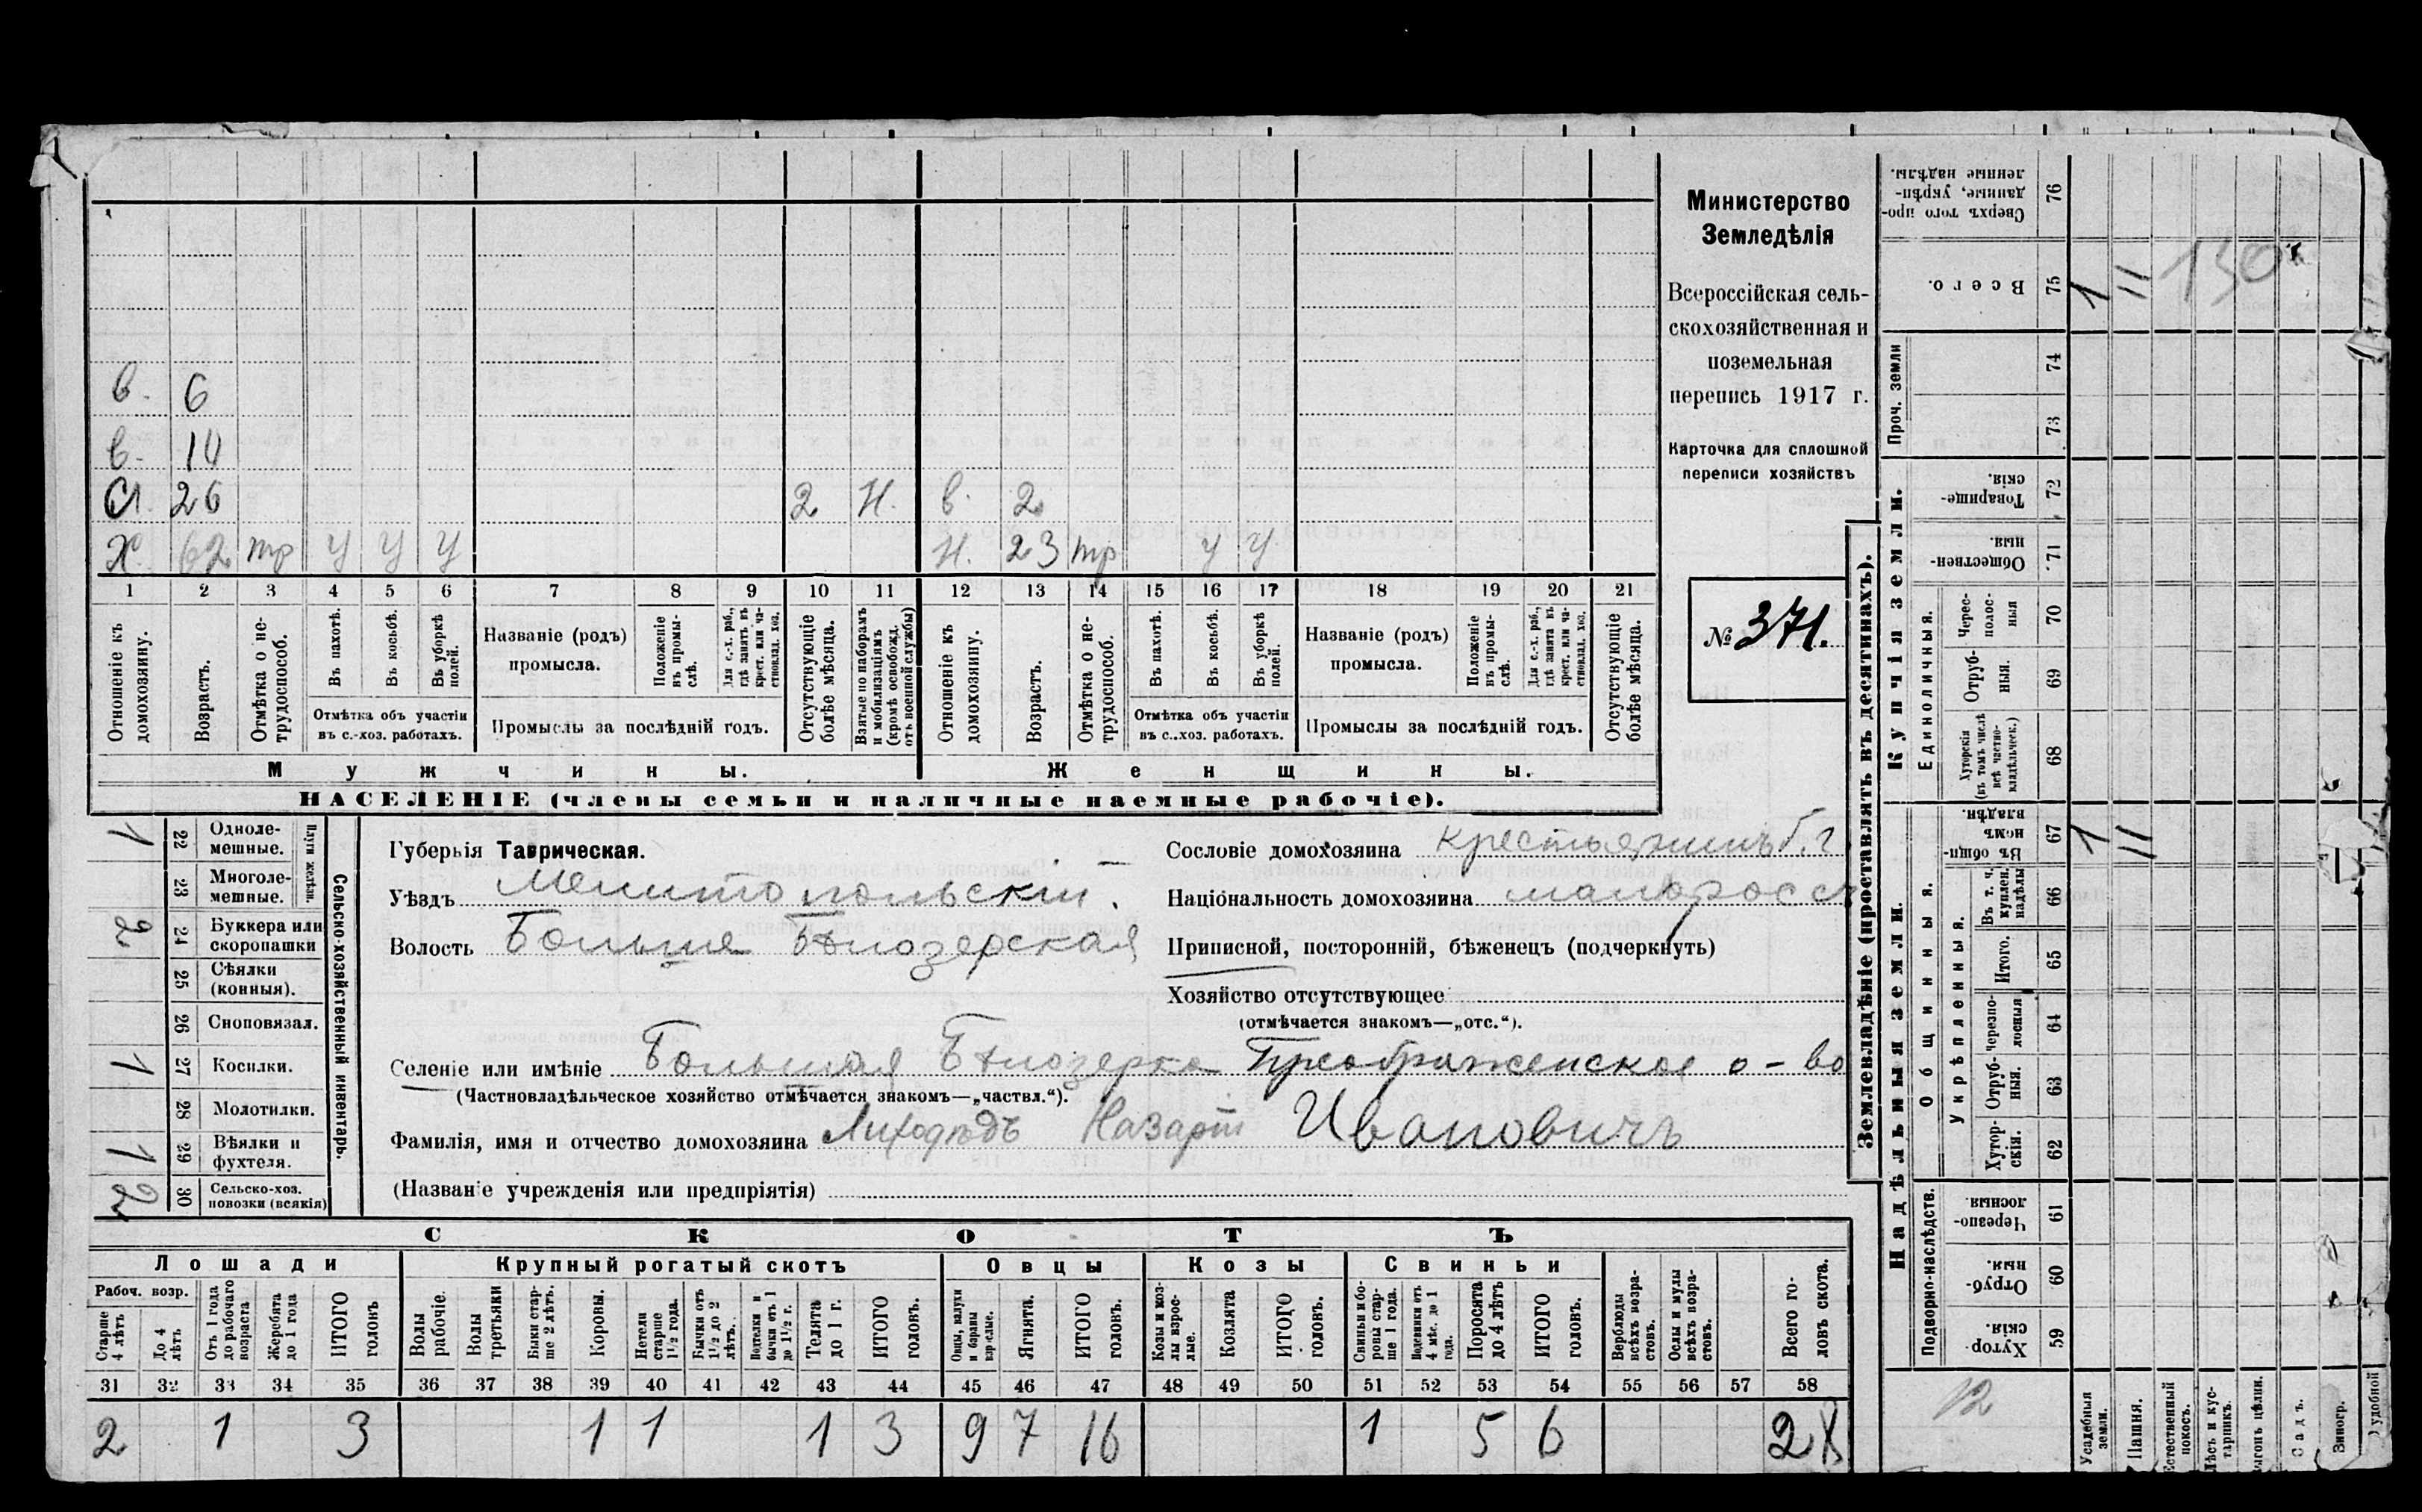 в. 6
в. 14
С. 26 2 Н. в. 2
Х. 62 тр У У У Н. 23 тр У У
1 2 3 4 5 6 7 8 9 10 11 12 13 14 15 16 17 18 19 20 21
Отношеніе къ домохозяину.
Возрастъ.
Отмѣтка о не-трудоспособ.
Въ пахотѣ.
Въ косьбѣ.
Въ уборкѣ полей.
Отмѣтка объ участіи
въ с.-хоз. работахъ.
Названіе (родъ)
промысла.
Положеніе въ промы-слѣ.
Для с.-х. раб., гдѣ занятъ въ крест. или ча-стновлад. хоз.
Промыслы за послѣдній годъ.
Отсутствующіе болѣе мѣсяца.
Взятые по наборамъ и мобилизаціямъ (кромѣ освобожд. отъ военной службы)
Отношеніе къ домохозяину.
Возрастъ.
Отмѣтка о не-трудоспособ.
Въ пахотѣ.
Въ косьбѣ.
Въ уборкѣ полей.
Отмѣтка объ участіи
въ с.-хоз. работахъ.
Названіе (родъ)
промысла.
Положеніе въ промы-слѣ.
Для с.-х. раб., гдѣ занята въ крест. или ча-стновлад. хоз.
Промыслы за послѣдній годъ.
Отсутствующіе болѣе мѣсяца.
Мужчины. Женщины.
НАСЕЛЕНІЕ (члены семьи и наличные наемные рабочіе).
Министерство
Земледѣлія
Всероссійская сель-
скохозяйственная и
поземельная
перепись 1917 г.
Карточка для сплошной
переписи хозяйствъ
№ 371.
Сельско-хозяйственный инвентарь.
Плуги желѣзн.
1 22 Одноле-мешные.
23 Многоле-мешные.
2 24 Буккера или скоропашки
25 Сѣялки (конныя).
26 Сноповязал.
1 27 Косилки.
28 Молотилки.
1 29 Вѣялки и фухтеля.
2 30 Сельско-хоз. повозки (всякія)
Губернія Таврическая.
Уѣздъ Мелитопольскій.
Волость Больше Бѣлозерская
Сословіе домохозяина крестьянинъ
Національность домохозяина малоросс
Приписной, посторонній, бѣженецъ (подчеркнуть)
Хозяйство отсутствующее
(отмѣчается знакомъ—„отс.“).
Селеніе или имѣніе Большая Бѣлозерка Преображенское о-во
(Частновладѣльческое хозяйство отмѣчается знакомъ—„частвл.“).
Фамилія, имя и отчество домохозяина Лиходѣдъ Назарій Ивановичъ
(Названіе учрежденія или предпріятія)
СКОТЪ
Лошади Крупный рогатый скотъ Овцы Козы Свиньи
Рабоч. возр.
Старше 4 лѣтъ
До 4 лѣтъ
Отъ 1 года до рабочаго возраста
Жеребята до 1 года
ИТОГО головъ
Волы рабочіе.
Волы третьяки
Быки стар-ше 2 лѣтъ.
Коровы.
Нетели старше 1½ года.
Бычки отъ 1½ до 2 лѣтъ.
Подтелки и бычки отъ 1 до 1½ г.
Телята до 1 г.
ИТОГО головъ.
Овцы, валухи и бараны взрослые.
Ягнята.
ИТОГО головъ.
Козы и коз-лы взрос-лые.
Козлята
ИТОГО головъ.
Свиньи и бо-ровы стар-ше 1 года.
Подсвинки отъ 4 мѣс. до 1 года.
Поросята до 4 лѣтъ
ИТОГО головъ.
Верблюды всѣхъ возра-стовъ.
Ослы и мулы всѣхъ возра-стовъ.
Всего го-ловъ скота.
31 32 33 34 35 36 37 38 39 40 41 42 43 44 45 46 47 48 49 50 51 52 53 54 55 56 57 58
2 1 3 1 1 1 3 9 7 16 1 5 6 28
Землевладѣніе (проставлять въ десятинахъ).
Купчія земли.
Надѣльныя земли.
Сверхъ того про-данные, укрѣп-ленные надѣлы. 76
Всего. 75 1 11 130
Проч. земли 74 73
Товарище-скія. 72
Обществен-ныя. 71
Единоличныя.
Черес-полос-ныя 70
Отруб-ныя. 69
Хуторскія (въ томъ числѣ всѣ частно-владѣльческ.) 68
Общинныя.
Въ общин-номъ владѣн. 67 1 11
Укрѣпленныя.
Въ т. ч. куплен. надѣлы 66
Итого. 65
Черезпо-лосныя 64
Отруб-ныя. 63
Хутор-скія. 62
Подворно-наслѣдств.
Черезпо-лосныя. 61
Отруб-ныя. 60
Хутор-скія. 59
12
Усадебныя земли.
Пашня.
Естественный покосъ.
Лѣсъ и кус-тарникъ.
Выгонъ цѣлин.
Садъ.
Виногр.
удобной